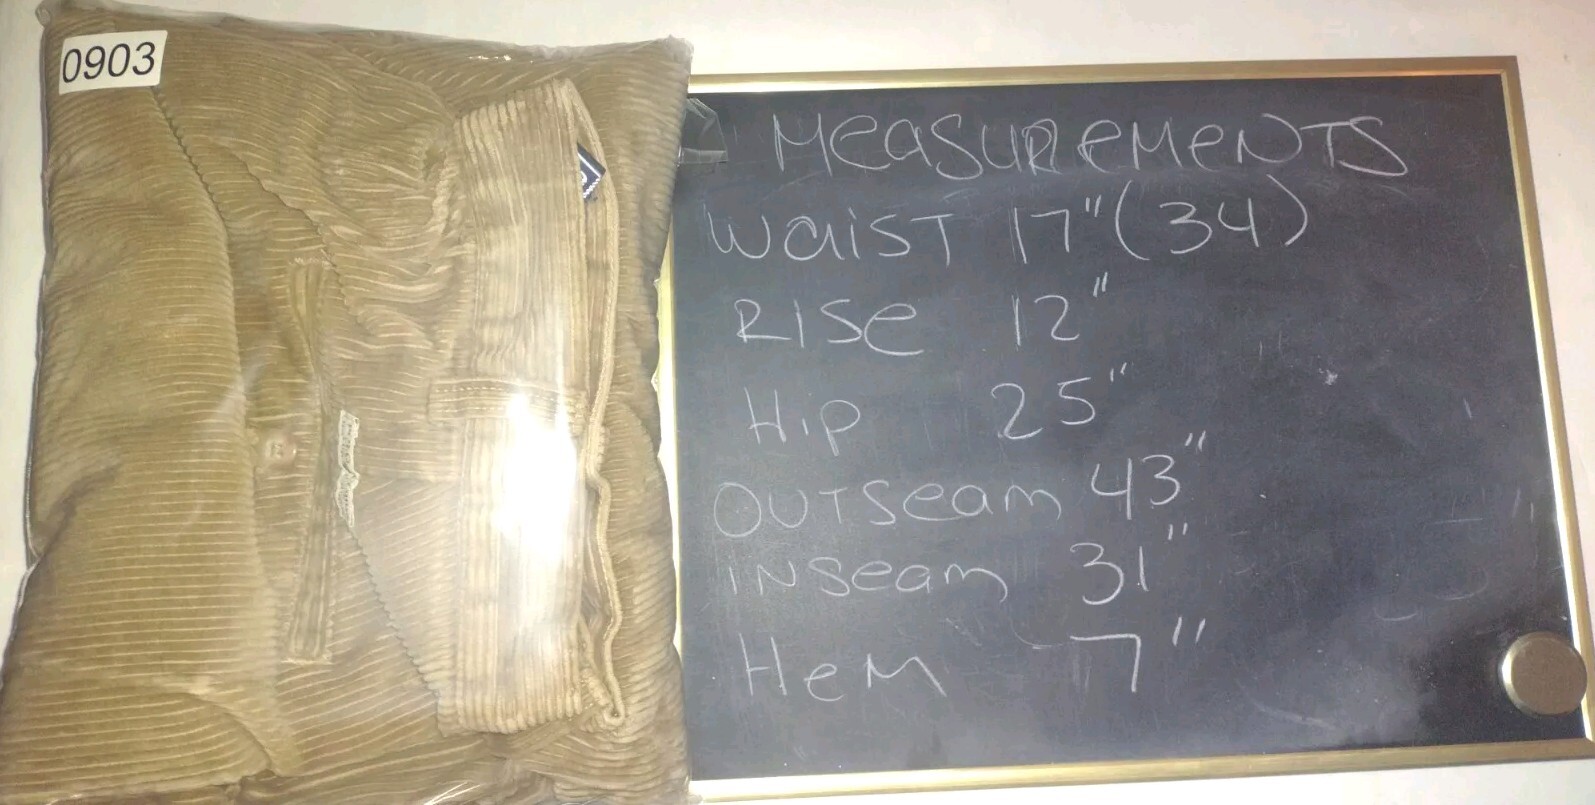 0903
MeasuReMeNTS
WaiST 17" (34)
RISe 12"
Hip 25"
OUTSeam 43"
iNSeam 31"
HeM 7"